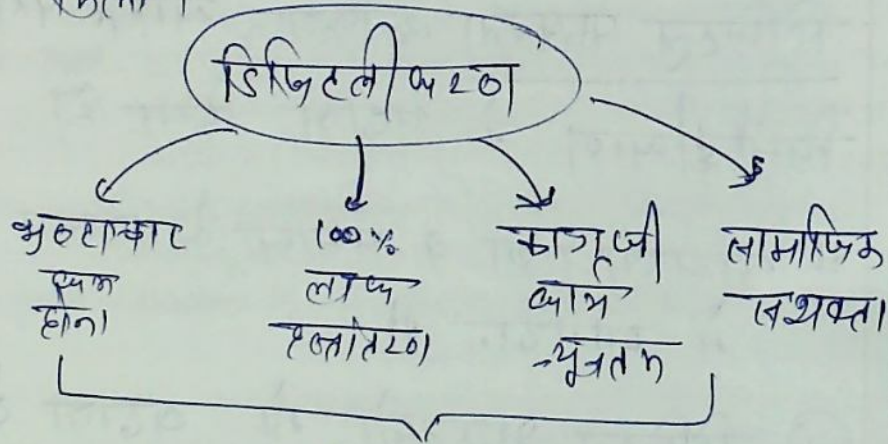 डिजिटलीकरण
भ्रष्टाचार
कम
होना
100%
लाभ
हस्तांतरण
कागजी
काम
न्यूनतम
सामाजिक